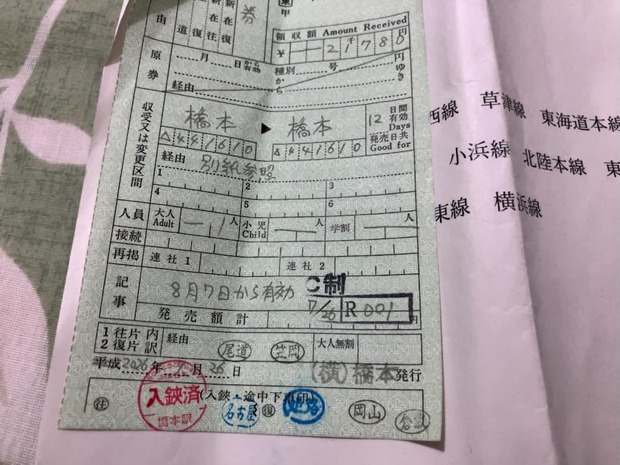 券
甲
由
道
新在往
新在復
領収額 Amount Received
¥ 21780 円
原券
月 日から有効 種別 号
経由 から ゆき
収受又は変更区間
橋本 ▶ 橋本 12 日間有効 Days
△441610 △441610 発売日共 Good for
経由 別紙参照
1 2 3
4 5 6
人員 大人 Adult 1人 小児 Child 人 学割 人
接続
再掲 連社1 連社2
記事
8月7日から有効 C制
7/26 R001
発売額計 円
1 往片 内
2 復片 訳 経由 尾道 笠岡 大人無割
平成 2026年7月26日 (横)橋本発行
入鋏済 橋本駅
(入鋏・途中下車印)
往 名古屋 復 姫路 岡山
西線 草津線 東海道本線
小浜線 北陸本線 東
東線 横浜線